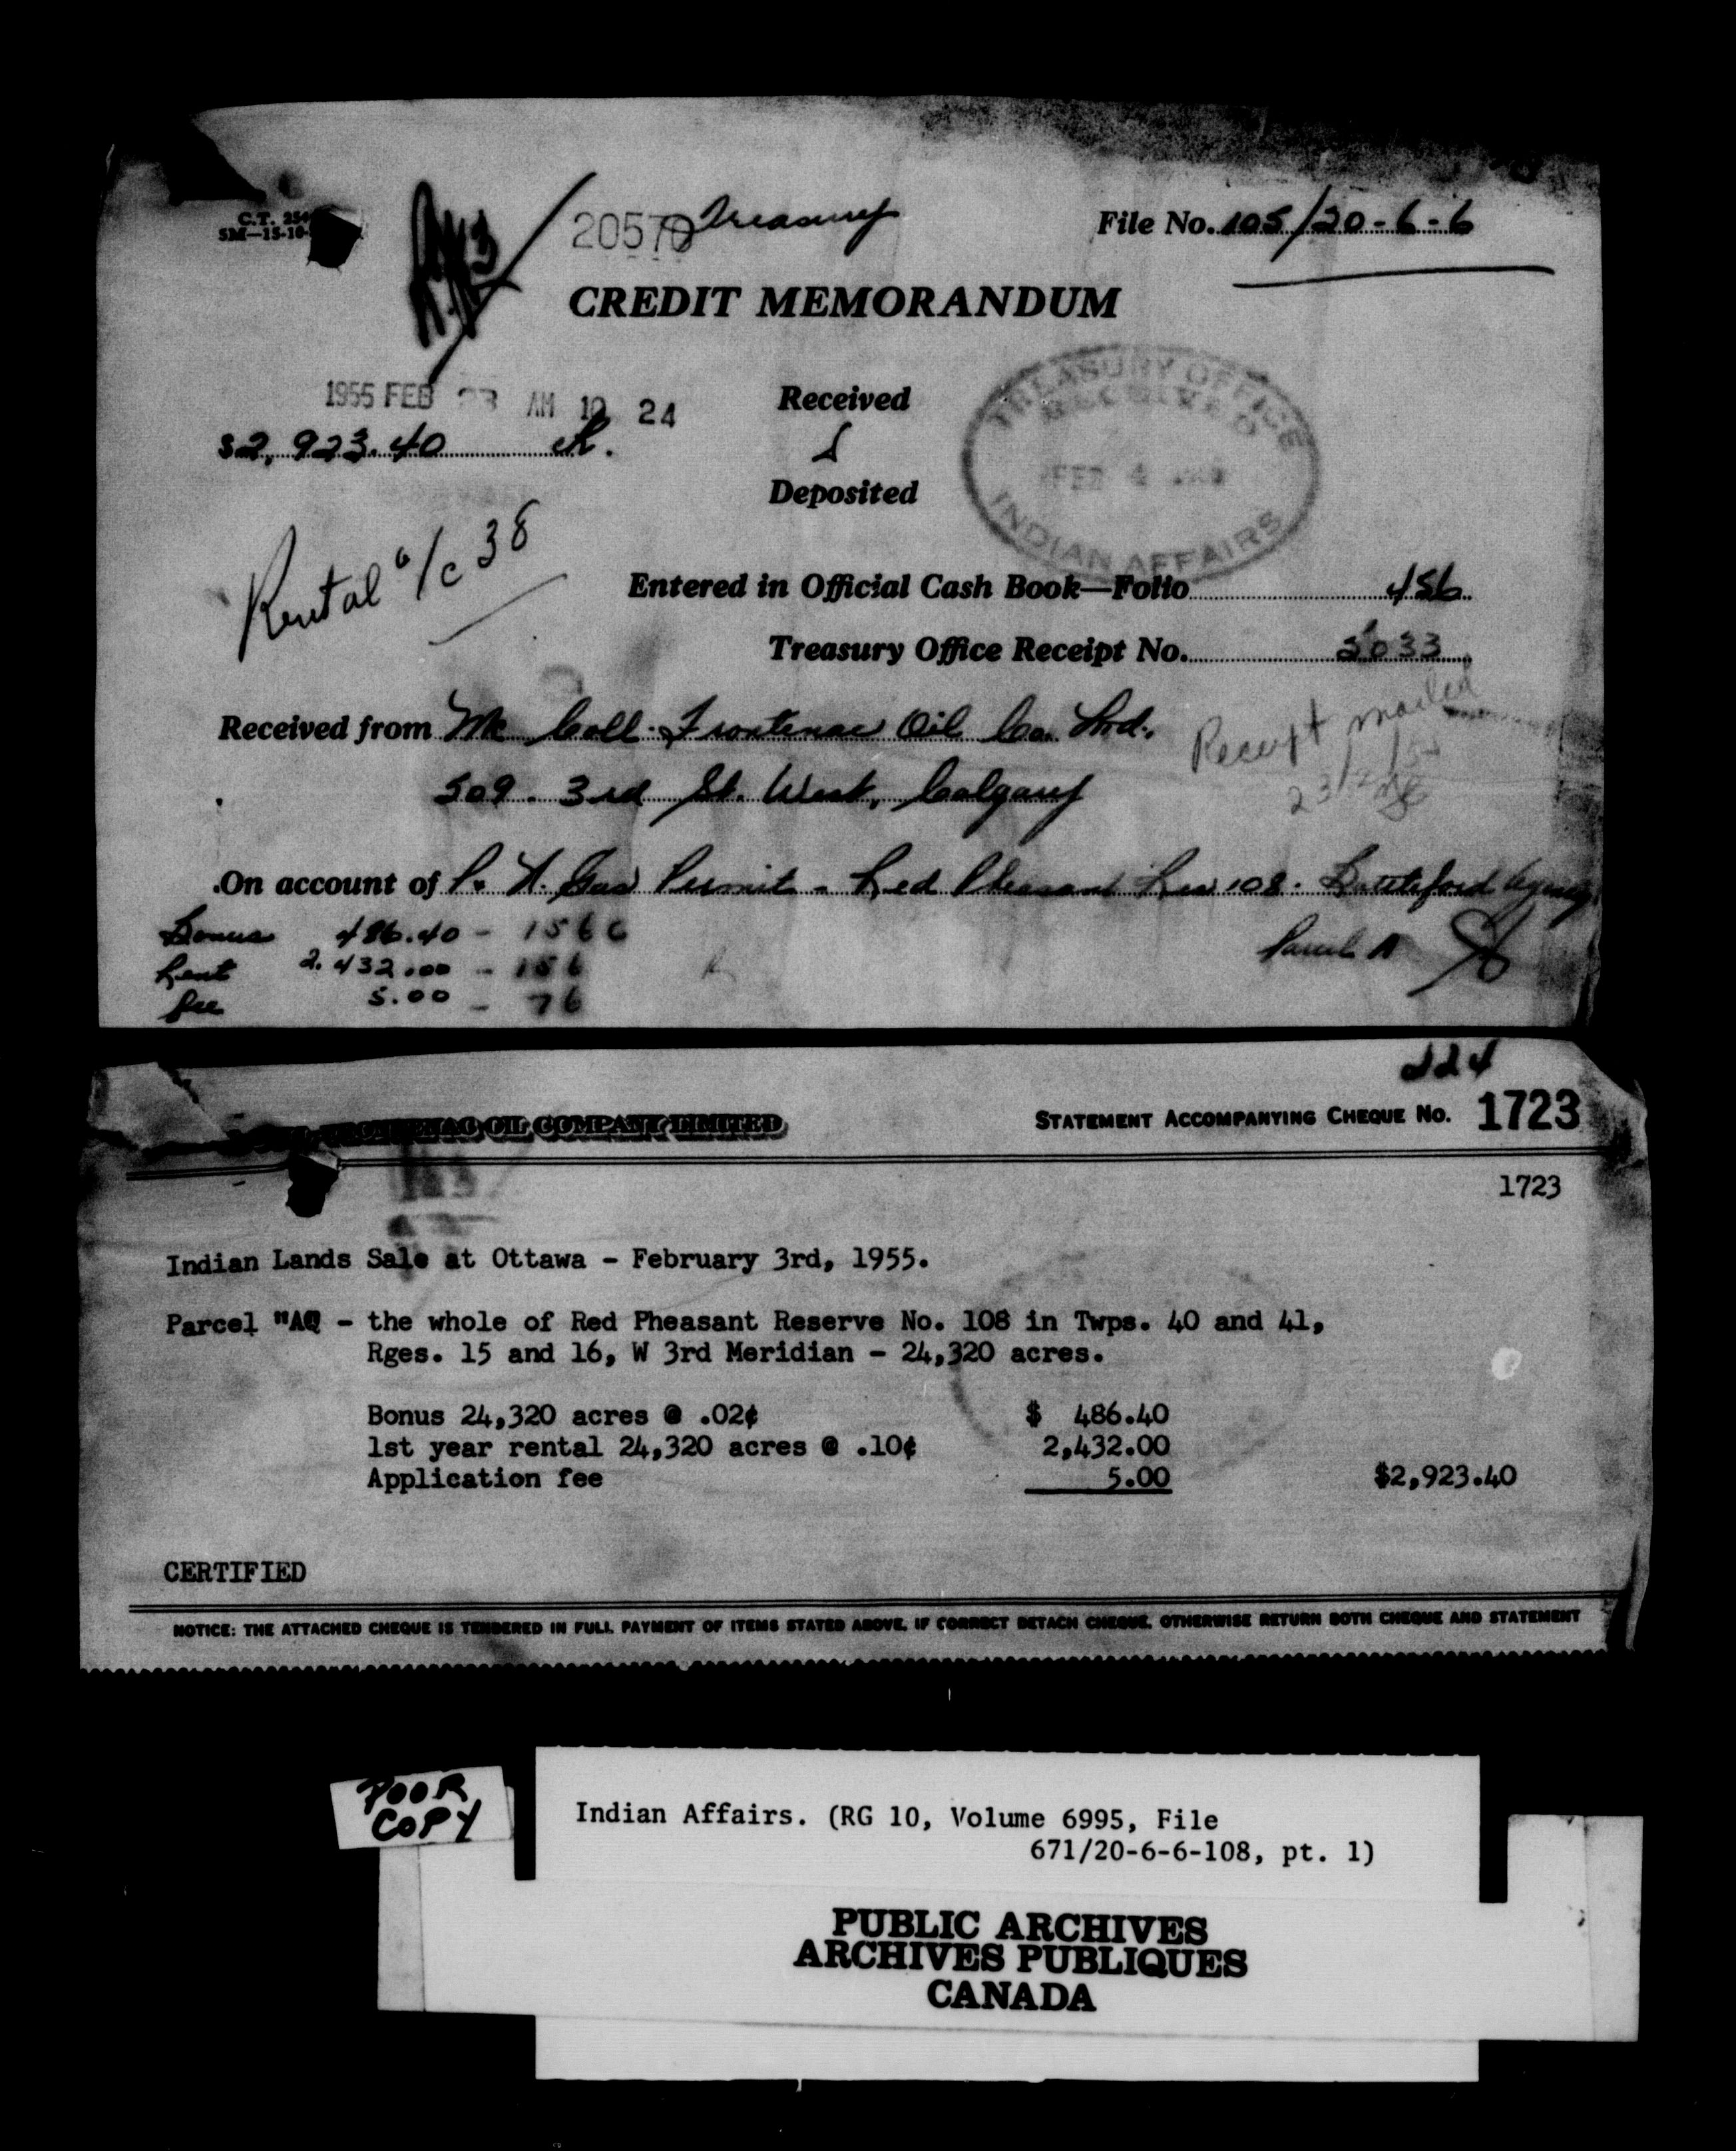 C.T. 254
5M-15-10-
20570 Treasury
File No. 105/20-6-6
CREDIT MEMORANDUM
1955 FEB 23 AM 10 24
Received
$2,923.40
Deposited
TREASURY OFFICE
RECEIVED
FEB 4
INDIAN AFFAIRS
Rental a/c 38
Entered in Official Cash Book—Folio 456
Treasury Office Receipt No. 5033
Received from Mc Coll-Frontenac Oil Co. Ltd.
Receipt mailed
509 - 3rd St. West, Calgary
On account of P. & N. Gas Permit - Red Pheasant Res 108 - Battleford Agency
Bonus 486.40 - 156C
Parcel A
Rent 2,432.00 - 156
fee 5.00 - 76
224
OIL COMPANY LIMITED
STATEMENT ACCOMPANYING CHEQUE NO. 1723
1723
Indian Lands Sale at Ottawa - February 3rd, 1955.
Parcel "AQ - the whole of Red Pheasant Reserve No. 108 in Twps. 40 and 41,
Rges. 15 and 16, W 3rd Meridian - 24,320 acres.
Bonus 24,320 acres @ .02¢ $ 486.40
1st year rental 24,320 acres @ .10¢ 2,432.00
Application fee 5.00 $2,923.40
CERTIFIED
NOTICE: THE ATTACHED CHEQUE IS TENDERED IN FULL PAYMENT OF ITEMS STATED ABOVE. IF CORRECT DETACH CHEQUE. OTHERWISE RETURN BOTH CHEQUE AND STATEMENT
POOR
COPY
Indian Affairs. (RG 10, Volume 6995, File
671/20-6-6-108, pt. 1)
PUBLIC ARCHIVES
ARCHIVES PUBLIQUES
CANADA